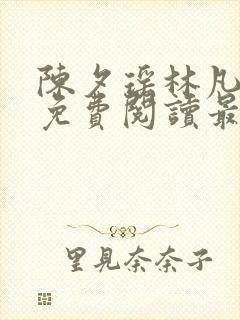 陳夕瑶林凡
免費閱讀最
里見奈奈子